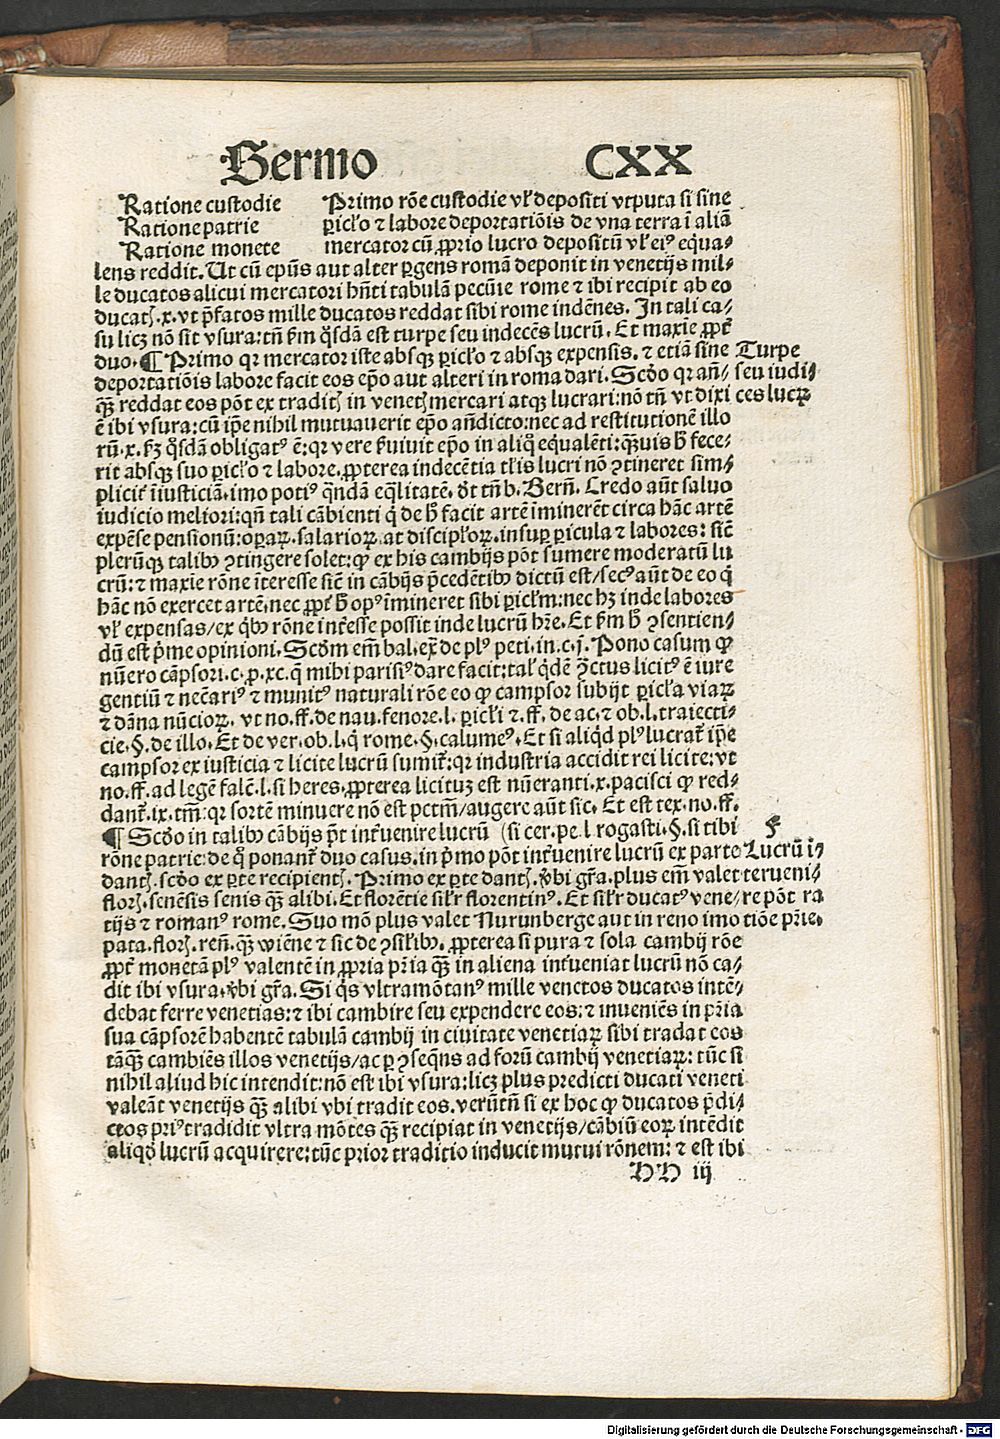 Sermo CXX
Ratione custodie
Ratione patrie
Ratione monete
Primo rōe custodie vl̓ depositi vtputa si sine
ꝑicl̓o ⁊ labore deportatiōis de vna terra ī aliā
mercator cū ꝓprio lucro depositū vl̓ eiꝰ eq̇ua⸗
lens reddit. Ut cū ep̄us aut alter ꝑgens romā deponit in venetijs mil⸗
le ducatos alicui mercatori hn̄ti tabulā pecūie rome ⁊ ibi recipit ab eo
ducatꝭ .x. vt p̄fatos mille ducatos reddat sibi rome indēnes. In tali ca⸗
su licꝫ nō sit vsura: tn̄ ẜm qͦsdā est turpe seu indecēs lucrū. Et maxīe ꝓpt̓
duo. ¶ Primo qꝛ mercator iste absqꝫ ꝑicl̓o ⁊ absqꝫ expensis. ⁊ etiā sine
deportatiōis labore facit eos ep̄o aut alteri in roma dari. Scḋo qꝛ an̄⸗
qꝫ̄ reddat eos pōt ex traditꝭ in venetꝭ mercari atqꝫ lucrari: nō tn̄ vt dixi
ē ibi vsura: cū ip̄e nihil mutuauerit ep̄o an̄dicto: nec ad restitutionē illo
rū .x. ẜꝫ qͦsdā obligatꝰ ē: qꝛ vere ẜuiuit ep̄o in aliqͦ equalēti: qꝫ̄uis ħ fece⸗
rit absqꝫ suo ꝑicl̓o ⁊ labore. ꝓpterea indecētia tl̓is lucri nō ꝯtineret sim⸗
plicit̓ īiusticiā. imo potiꝰ qn̄dā eq̄litatē. ḋt tn̄ b. Berñ. Credo aūt saluo
iudicio meliori: qn̄ tali cābienti q̇ de ħ facit artē īminerēt circa hāc artē
expēse pensionū: oꝑaꝝ. salarioꝝ. at discipl̓oꝝ. insuꝑ ꝑicula ⁊ labores: sic̄
plerūqꝫ talibꝫ ꝯtingere solet: ꝙ ex his cambijs pōt sumere moderatū lu
crū: ⁊ maxīe rōne īteresse sic̄ in cābijs p̄cedētibꝫ dictū est/secꝰ aūt de eo q̇
hāc nō exercet artē. nec ꝓpt̓ ħ opꝰ īmineret sibi ꝑicl̓m: nec hꝫ inde labores
vl̓ expensas/ex qͥbꝫ rōne int̓esse possit inde lucrū hr̄e. Et ẜm ħ ꝯsentien⸗
dū est p̄me opinioni. Scḋm em̄ bal. ex̄ de plꝰ peti. in .c. j. Pono casum ꝙ
nūero cāpsori .c. ꝑ .xc. q̄ mihi parisiꝰ dare facit: tal̓ qͥdē ꝯctus licitꝰ ē iure
gentiū ⁊ nec̄ariꝰ ⁊ munitꝰ naturali rōe eo ꝙ campsor subijt ꝑicl̓a viaꝝ
⁊ dāna nūcioꝝ. vt no. ff. de nau. fenore. l. ꝑicl̓i ⁊. ff. de ac. ⁊ ob. l. traiecti⸗
cie. §. de illo. Et de ver. ob. l. q̇ rome. §. calumeꝰ. Et si aliqͥd plꝰ lucrat̓ ip̄e
campsor ex iusticia ⁊ licite lucrū sumit̓: qꝛ industria accidit rei licite: vt
no. ff. ad legē falc̄. l. si heres. ꝓpterea licituꝫ est nūeranti .x. pacisci ꝙ red⸗
dant̓ .ix. tm̄: qꝛ sortē minuere nō est pctm̄/augere aūt sic. Et est tex. no. ff.
¶ Scḋo in talibꝫ cābijs p̄t int̓uenire lucrū (si cer. pe. l rogasti. §. si tibi
rōne patrie: de q̄ ponant̓ duo casus. in p̄mo pōt int̓uenire lucrū ex parte
dantꝭ. scḋo ex ꝑte recipientꝭ. Primo ex ꝑte dantꝭ. v̓bi gr̄a. plus em̄ valet
florꝭ. senēsis senis qꝫ̄ alibi. Et florētie sil̓r florentinꝰ. Et sil̓r ducatꝰ vene⸗
tijs ⁊ romanꝰ rome. Suo mō plus valet Nurunberge aut in reno imo
pata. florꝭ. reñ. qꝫ̄ wiēne ⁊ sic de ꝯsil̓ibꝫ. ꝓpterea si pura ⁊ sola cambij rōe
ꝓpt̓ monetā plꝰ valentē in ꝓpria pr̄ia qꝫ̄ in aliena int̓ueniat lucrū nō ca⸗
dit ibi vsura. v̓bi gr̄a. Si qͥs vltramōtanꝰ mille venetos ducatos intē⸗
debat ferre venetias: ⁊ ibi cambire seu expendere eos: ⁊ inueniēs in pr̄ia
sua cāpsorē habentē tabulā cambij in ciuitate venetiaꝝ sibi tradat eos
tāqꝫ̄ cambiēs illos venetijs/ac ꝑ ꝯseqn̄s ad forū cambij venetiaꝝ: tūc si
nihil aliud hic intendit: nō est ibi vsura: licꝫ plus predicti ducati veneti
valeāt venetijs qꝫ̄ alibi vbi tradit eos. verūtn̄ si ex hoc ꝙ ducatos p̄di⸗
ctos priꝰ tradidit vltra mōtes qꝫ̄ recipiat in venetijs/cābiū eoꝝ intēdit
aliqḋ lucrū acquirere: tūc prior traditio inducit mutui rōnem: ⁊ est ibi
Turpe
seu iudi⸗
ces lucꝝ
F
Lucrū i⸗
terueni⸗
re pōt ra
tiōe pr̄ie.
HH iij
Digitalisierung gefördert durch die Deutsche Forschungsgemeinschaft - DFG